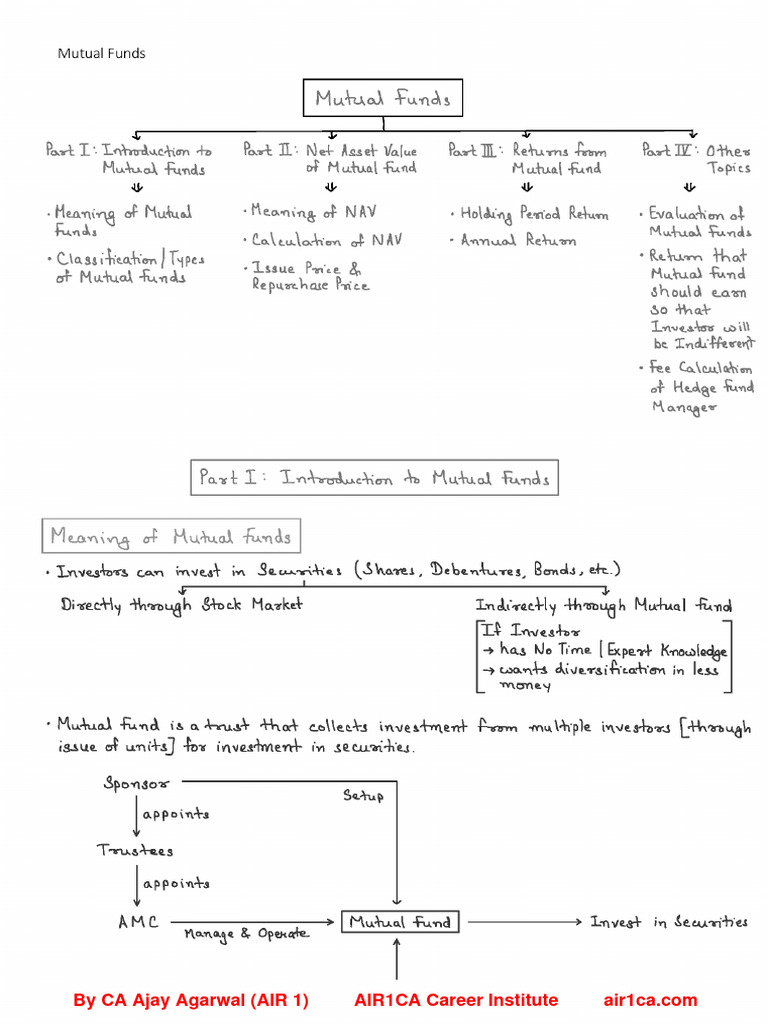 Mutual Funds
Mutual Funds
Part I: Introduction to
Mutual Funds
• Meaning of Mutual
Funds
• Classification/Types
of Mutual Funds
Part II: Net Asset Value
of Mutual Fund
• Meaning of NAV
• Calculation of NAV
• Issue Price &
Repurchase Price
Part III: Returns from
Mutual Fund
• Holding Period Return
• Annual Return
Part IV: Other
Topics
• Evaluation of
Mutual Funds
• Return that
Mutual Fund
should earn
so that
Investor will
be Indifferent
• Fee Calculation
of Hedge Fund
Manager
Part I: Introduction to Mutual Funds
Meaning of Mutual Funds
• Investors can invest in Securities (Shares, Debentures, Bonds, etc.)
Directly through Stock Market
Indirectly through Mutual Fund
If Investor
→ has No Time/Expert Knowledge
→ wants diversification in less
money
• Mutual Fund is a trust that collects investment from multiple investors [through
issue of units] for investment in securities.
Sponsor
Setup
appoints
Trustees
appoints
AMC
Manage & Operate
Mutual Fund
Invest in Securities
By CA Ajay Agarwal (AIR 1) AIR1CA Career Institute air1ca.com